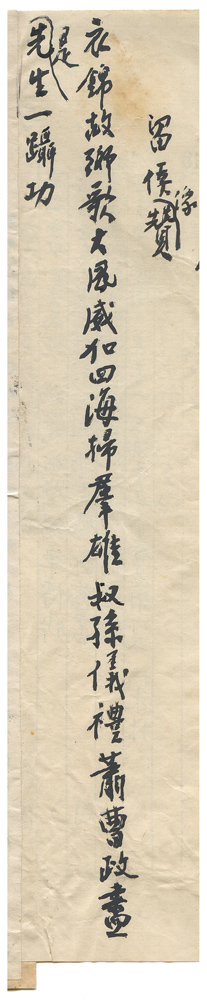 留侯像贊
衣錦故鄉歌大風威加四海掃羣雄叔孫儀禮蕭曹政盡
是先生一躡功